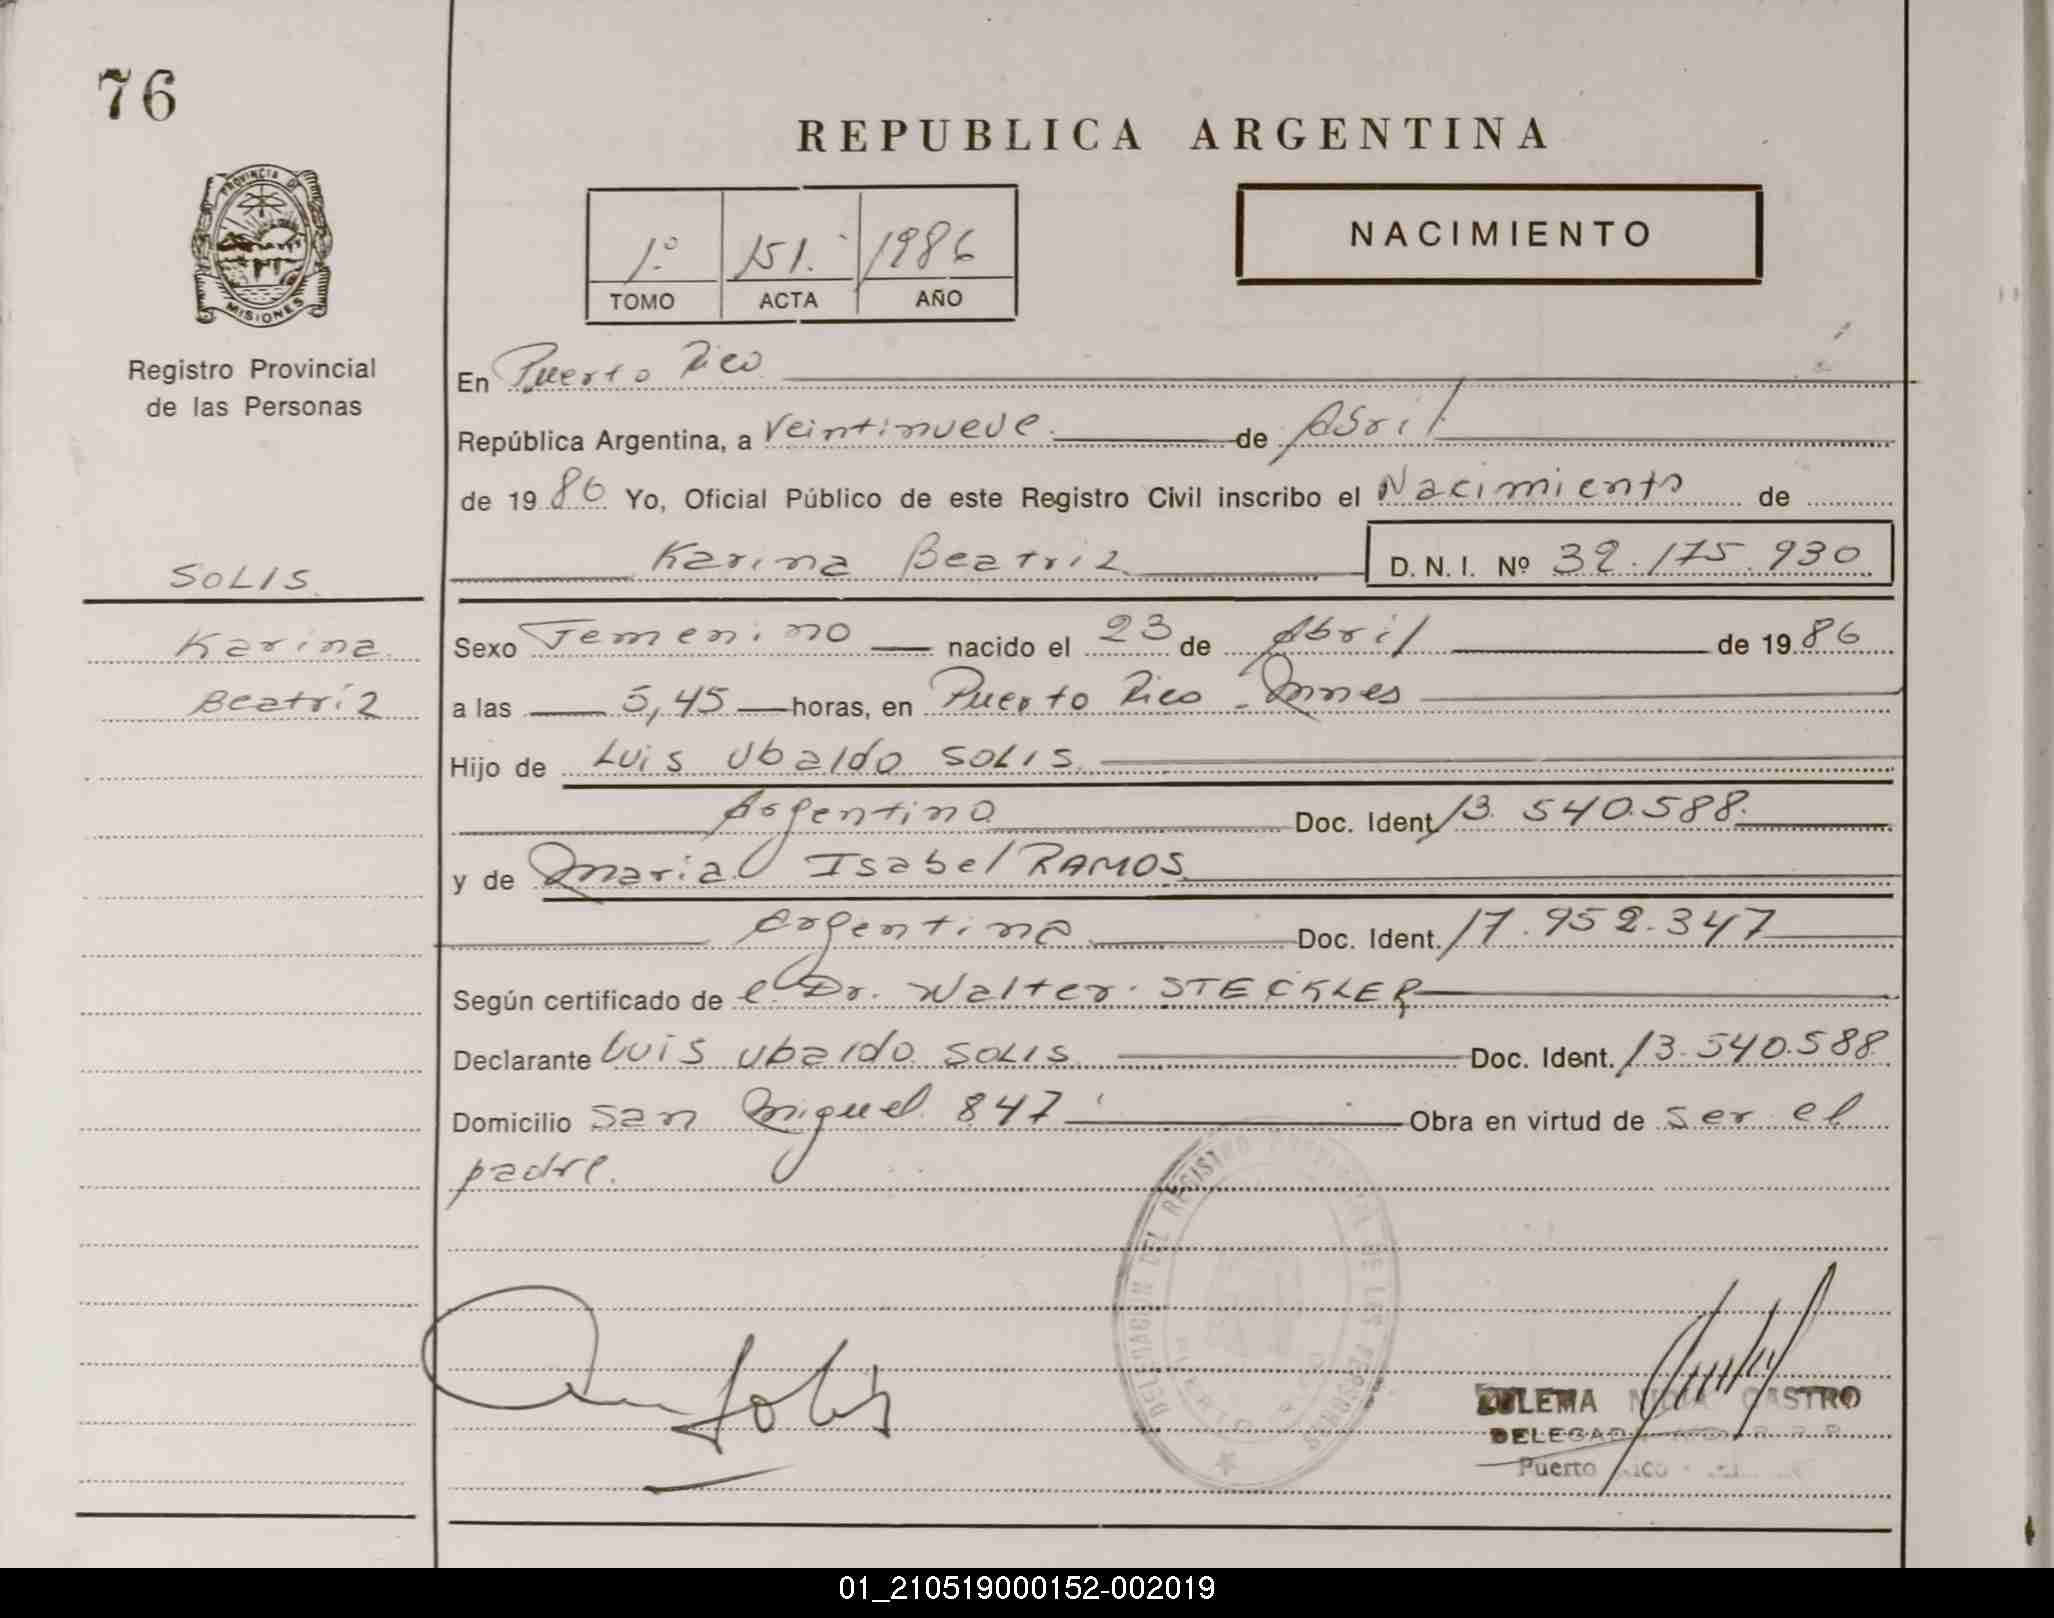 76
REPUBLICA ARGENTINA
PROVINCIA DE
MISIONES
1º 151. 1986
TOMO ACTA AÑO
NACIMIENTO
Registro Provincial
de las Personas
En Puerto Rico
República Argentina, a Veintinueve de Abril
de 1986 Yo, Oficial Público de este Registro Civil inscribo el Nacimiento de
Karina Beatriz D. N. I. Nº 32.175.930
SOLIS
Karina
Beatríz
Sexo Femenino nacido el 23 de Abril de 1986
a las 5,45 horas, en Puerto Rico - Mnes
Hijo de Luis Ubaldo SOLIS
Argentino Doc. Ident. 13.540.588.
y de Maria Isabel RAMOS
Argentina Doc. Ident. 17.952.347
Según certificado de el Dr. Walter STECKLER
Declarante Luis Ubaldo SOLIS Doc. Ident. 13.540.588
Domicilio San Miguel 847 Obra en virtud de ser el
padre.
DELEGACION DEL REGISTRO PROVINCIAL DE LAS PERSONAS
PUERTO RICO
Solis
ZULEMA NIDIA CASTRO
DELEGADA
Puerto Rico
01_210519000152-002019